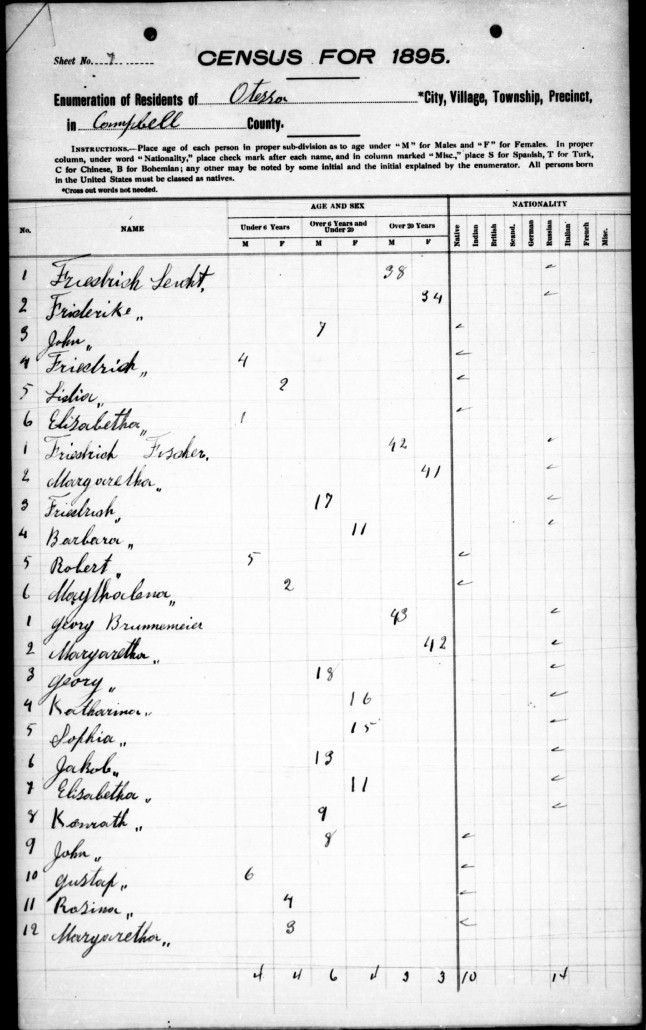 Sheet No. 7
CENSUS FOR 1895.
Enumeration of Residents of Otessa *City, Village, Township, Precinct,
in Campbell County.
INSTRUCTIONS.—Place age of each person in proper sub-division as to age under "M" for Males and "F" for Females. In proper
column, under word "Nationality," place check mark after each name, and in column marked "Misc.," place S for Spanish, T for Turk,
C for Chinese, B for Bohemian; any other may be noted by some initial and the initial explained by the enumerator. All persons born
in the United States must be classed as natives.
*Cross out words not needed.
No. NAME AGE AND SEX NATIONALITY
Under 6 Years Over 6 Years and Under 20 Over 20 Years
M F M F M F Native Indian British Scand. German Russian Italian French Misc.
1 Friedrich 38 ✓
2 Friderike „ 34 ✓
3 John „ 7 ✓
4 Friedrich „ 4 ✓
5 Lidia „ 2 ✓
6 Elisabetha „ 1 ✓
1 Friedrich Fischer. 42 ✓
2 Margaretha „ 41 ✓
3 Friedrich „ 17 ✓
4 Barbara „ 11 ✓
5 Robert „ 5 ✓
6 Magthalena „ 2 ✓
1 georg Brunnemeier 43 ✓
2 Margaretha „ 42 ✓
3 georg „ 18 ✓
4 Katharina „ 16 ✓
5 Sophia „ 15 ✓
6 Jakob „ 13 ✓
7 Elisabetha „ 11 ✓
8 Konrath „ 9 ✓
9 John „ 8 ✓
10 gustap „ 6 ✓
11 Rosina „ 4 ✓
12 Margaretha „ 3 ✓
4 4 6 4 3 3 10 14